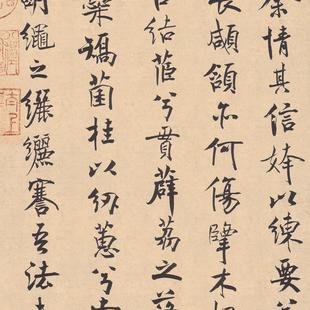 余情其信姱以練要兮
長顑頷亦何傷擥木
結茝兮貫薜荔之落
蘂矯菌桂以紉蕙兮索
胡繩之纚纚謇吾法夫